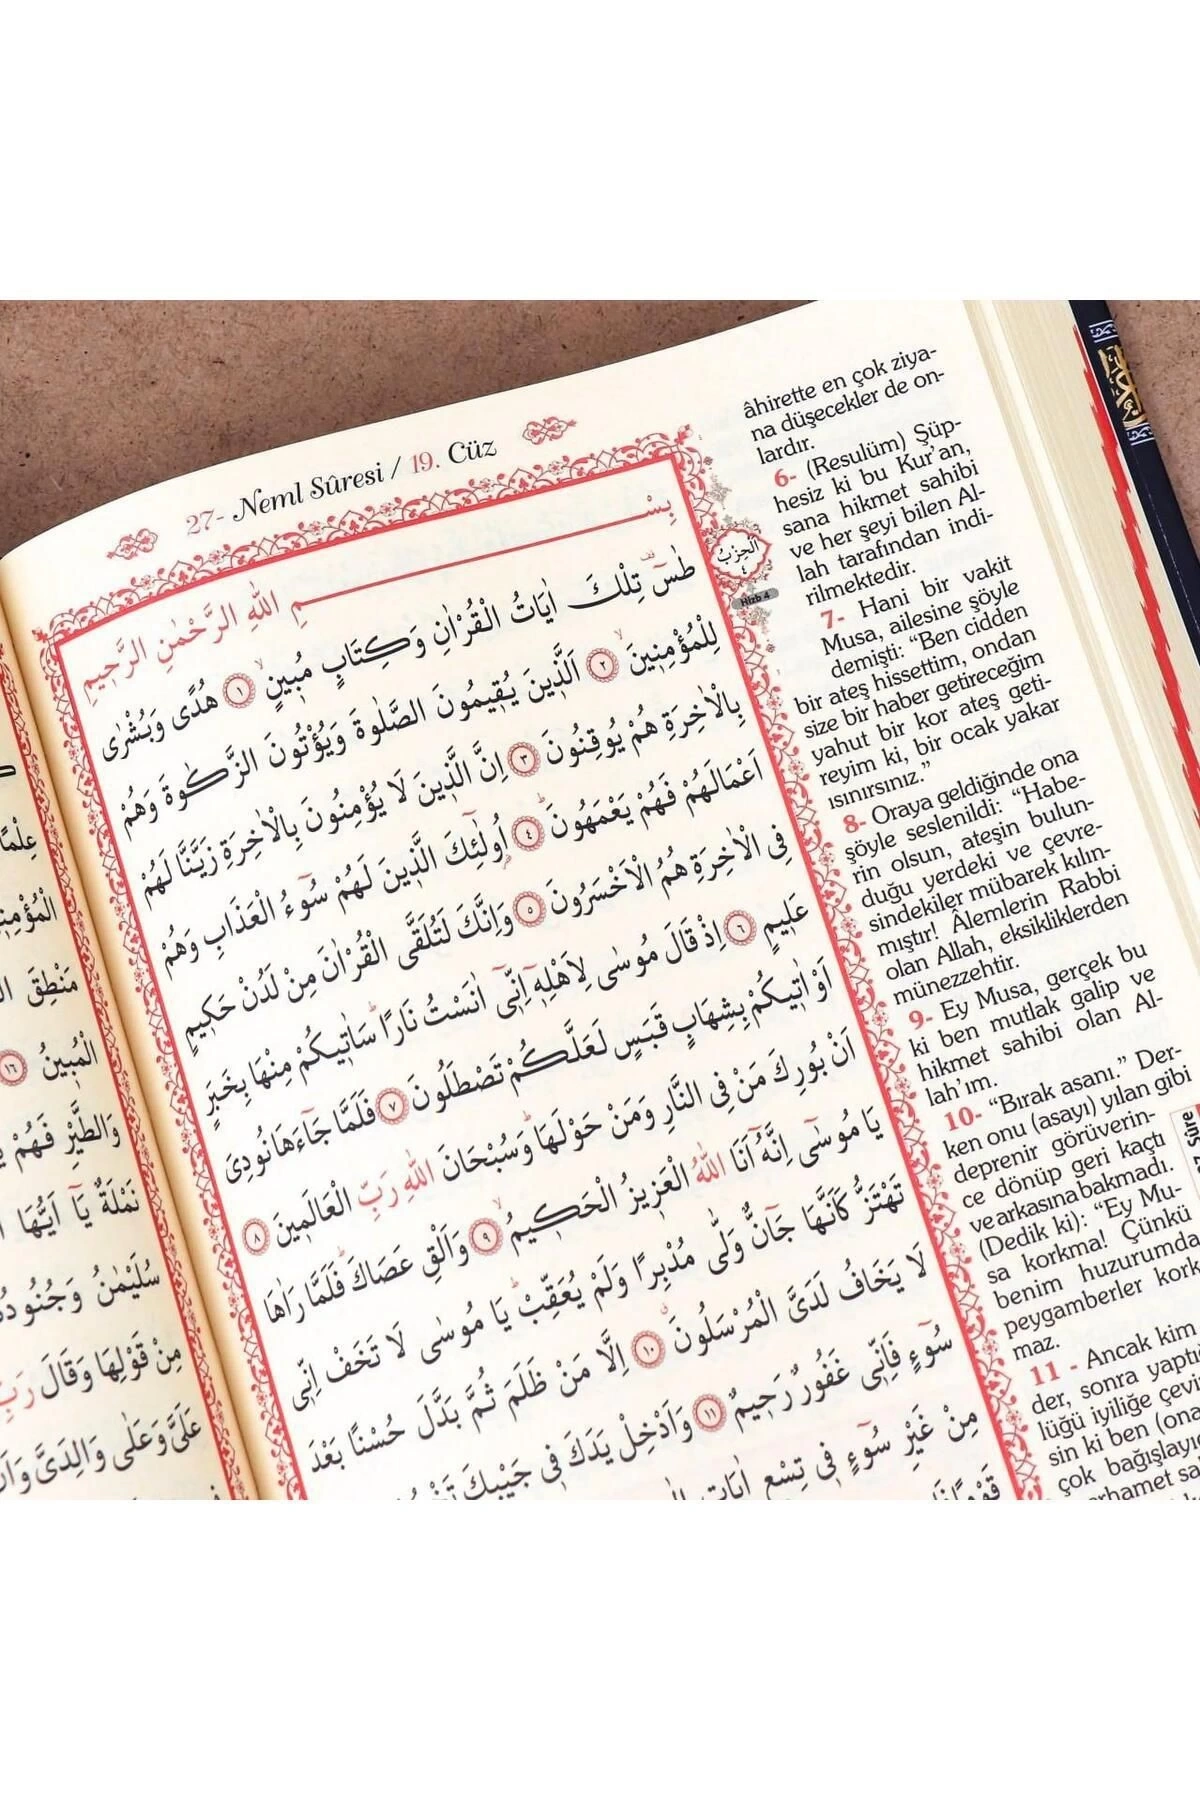 27- Neml Sûresi / 19. Cüz
بِسْمِ اللهِ الرَّحْمٰنِ الرَّح۪يمِ
طٰسٓ تِلْكَ اٰيَاتُ الْقُرْاٰنِ وَكِتَابٍ مُب۪ينٍۙ ﴿١﴾ هُدًى وَبُشْرٰى
لِلْمُؤْمِن۪ينَۙ ﴿٢﴾ اَلَّذ۪ينَ يُق۪يمُونَ الصَّلٰوةَ وَيُؤْتُونَ الزَّكٰوةَ وَهُمْ
بِالْاٰخِرَةِ هُمْ يُوقِنُونَ ﴿٣﴾ اِنَّ الَّذ۪ينَ لَا يُؤْمِنُونَ بِالْاٰخِرَةِ زَيَّنَّا لَهُمْ
اَعْمَالَهُمْ فَهُمْ يَعْمَهُونَۜ ﴿٤﴾ اُو۬لٰٓئِكَ الَّذ۪ينَ لَهُمْ سُٓوءُ الْعَذَابِ وَهُمْ
فِي الْاٰخِرَةِ هُمُ الْاَخْسَرُونَ ﴿٥﴾ وَاِنَّكَ لَتُلَقَّى الْقُرْاٰنَ مِنْ لَدُنْ حَك۪يمٍ
عَل۪يمٍ ﴿٦﴾ اِذْ قَالَ مُوسٰى لِاَهْلِه۪ٓ اِنّ۪ٓي اٰنَسْتُ نَارًاۜ سَاٰت۪يكُمْ مِنْهَا بِخَبَرٍ
اَوْ اٰت۪يكُمْ بِشِهَابٍ قَبَسٍ لَعَلَّكُمْ تَصْطَلُونَ ﴿٧﴾ فَلَمَّا جَٓاءَهَا نُودِيَ
اَنْ بُورِكَ مَنْ فِي النَّارِ وَمَنْ حَوْلَهَاۜ وَسُبْحَانَ اللهِ رَبِّ الْعَالَم۪ينَ ﴿٨﴾
يَا مُوسٰٓى اِنَّهُٓ اَنَا اللهُ الْعَز۪يزُ الْحَك۪يمُۙ ﴿٩﴾ وَاَلْقِ عَصَاكَۜ فَلَمَّا رَاٰهَا
تَهْتَزُّ كَاَنَّهَا جَٓانٌّ وَلّٰى مُدْبِرًا وَلَمْ يُعَقِّبْۜ يَا مُوسٰى لَا تَخَفْ اِنّ۪ي
لَا يَخَافُ لَدَيَّ الْمُرْسَلُونَۗ ﴿١٠﴾ اِلَّا مَنْ ظَلَمَ ثُمَّ بَدَّلَ حُسْنًا بَعْدَ
سُٓوءٍ فَاِنّ۪ي غَفُورٌ رَح۪يمٌ ﴿١١﴾ وَاَدْخِلْ يَدَكَ ف۪ي جَيْبِكَ
مِنْ غَيْرِ سُٓوءٍ ف۪ي تِسْعِ اٰيَاتٍ
اَلْحِزْبُ
٤
Hizb 4
âhirette en çok ziya-
na düşecekler de on-
lardır.
6- (Resulüm) Şüp-
hesiz ki bu Kur'an,
sana hikmet sahibi
ve her şeyi bilen Al-
lah tarafından indi-
rilmektedir.
7- Hani bir vakit
Musa, ailesine şöyle
demişti: “Ben cidden
bir ateş hissettim, ondan
size bir haber getireceğim
yahut bir kor ateş geti-
reyim ki, bir ocak yakar
ısınırsınız.”
8- Oraya geldiğinde ona
şöyle seslenildi: “Habe-
rin olsun, ateşin bulun-
duğu yerdeki ve çevre-
sindekiler mübarek kılın-
mıştır! Âlemlerin Rabbi
olan Allah, eksikliklerden
münezzehtir.
9- Ey Musa, gerçek bu
ki ben mutlak galip ve
hikmet sahibi olan Al-
lah'ım.
10- “Bırak asanı.” Der-
ken onu (asayı) yılan gibi
deprenir görüverin-
ce dönüp geri kaçtı
ve arkasına bakmadı.
(Dedik ki): “Ey Mu-
sa korkma! Çünkü
benim huzurumda
peygamberler kork-
maz.
11 - Ancak kim
der, sonra yaptığı
lüğü iyiliğe çevir
sin ki ben (ona
çok bağışlayıcı
الْمُب۪ينُ ﴿١٦﴾
وَالطَّيْرِ فَهُمْ
نَمْلَةٌ يَٓا اَيُّهَا
سُلَيْمٰنُ وَجُنُودُهُ
مِنْ قَوْلِهَا وَقَالَ رَبِّ
عَلَيَّ وَعَلٰى وَالِدَيَّ وَاَنْ